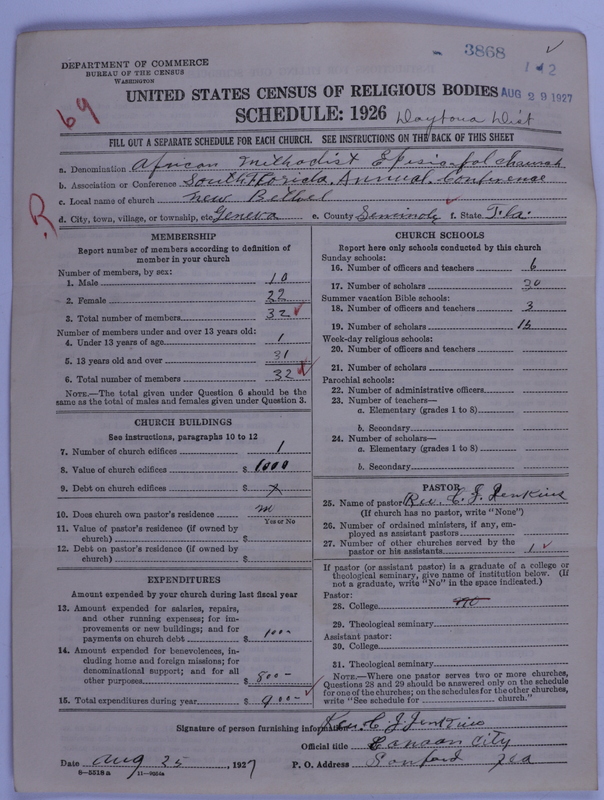 3868
1 42
DEPARTMENT OF COMMERCE
BUREAU OF THE CENSUS
WASHINGTON
69
UNITED STATES CENSUS OF RELIGIOUS BODIES AUG 29 1927
SCHEDULE: 1926 Daytona Dist
FILL OUT A SEPARATE SCHEDULE FOR EACH CHURCH. SEE INSTRUCTIONS ON THE BACK OF THIS SHEET
a. Denomination African Methodist Episicopal church
b. Association or Conference South Florida Annual Conference
c. Local name of church New Bethel
R
d. City, town, village, or township, etc Geneva e. County Seminole f. State Fla.
MEMBERSHIP
Report number of members according to definition of
member in your church
Number of members, by sex:
1. Male 10
2. Female 22
3. Total number of members 32
Number of members under and over 13 years old:
4. Under 13 years of age 1
5. 13 years old and over 31
6. Total number of members 32
NOTE.—The total given under Question 6 should be
same as the total of males and females given under Question 3.
CHURCH BUILDINGS
See instructions, paragraphs 10 to 12
7. Number of church edifices 1
8. Value of church edifices $ 1000
9. Debt on church edifices $ x
10. Does church own pastor's residence
Yes or No
11. Value of pastor's residence (if owned by
church) $
12. Debt on pastor's residence (if owned by
church) $
EXPENDITURES
Amount expended by your church during last fiscal year
13. Amount expended for salaries, repairs,
and other running expenses; for im-
provements or new buildings; and for
payments on church debt $ 100-
14. Amount expended for benevolences, in-
cluding home and foreign missions; for
denominational support; and for all
other purposes $ 800-
15. Total expenditures during year $ 900-
CHURCH SCHOOLS
Report here only schools conducted by this church
Sunday schools:
16. Number of officers and teachers 6
17. Number of scholars 20
Summer vacation Bible schools:
18. Number of officers and teachers 3
19. Number of scholars 15
Week-day religious schools:
20. Number of officers and teachers
21. Number of scholars
Parochial schools:
22. Number of administrative officers
23. Number of teachers—
a. Elementary (grades 1 to 8)
b. Secondary
24. Number of scholars—
a. Elementary (grades 1 to 8)
b. Secondary
PASTOR
25. Name of pastor Rev. C. J. Jenkins
(If church has no pastor, write "None")
26. Number of ordained ministers, if any, em-
ployed as assistant pastors
27. Number of other churches served by the
pastor or his assistants 1
If pastor (or assistant pastor) is a graduate of a college or
theological seminary, give name of institution below. (If
not a graduate, write "No" in the space indicated.)
Pastor:
28. College no
29. Theological seminary
Assistant pastor:
30. College
31. Theological seminary
NOTE.—Where one pastor serves two or more churches,
Questions 28 and 29 should be answered only on the schedule
for one of the churches; on the schedules for the other churches,
write "See schedule for church."
Signature of person furnishing information Rev. C J Jenkins
Official title City
Date Aug 25, 1927 P. O. Address Sanford Fla
8-5518a 11-9054a